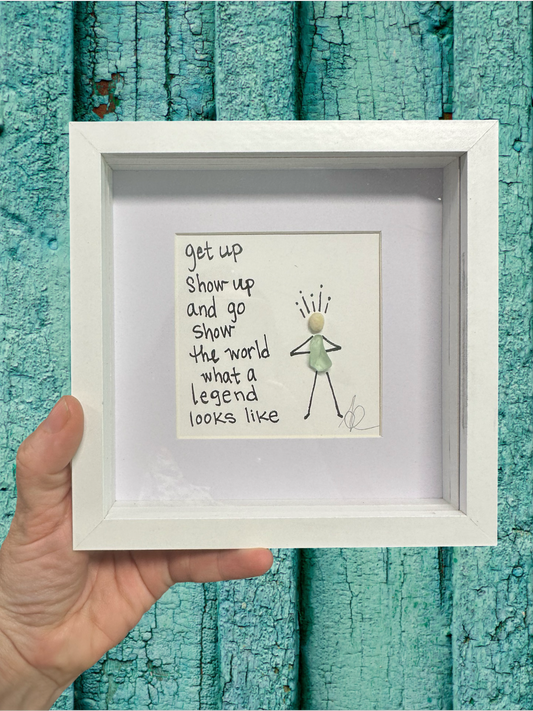 get up
show up
and go
show
the world
what a
legend
looks like